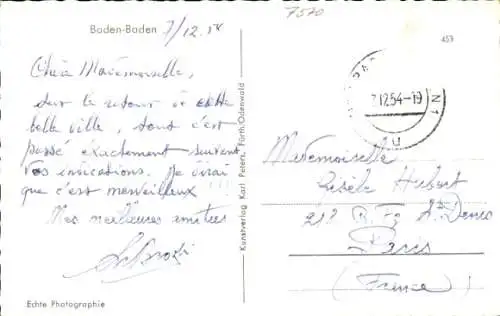 7570
Baden-Baden 7/12.54
453
Chère Mademoiselle,
sur le retour de cette
belle ville, tout s'est
passé exactement suivant
vos indications. Je dirai
que c'est merveilleux
Mes meilleures amitiés
Echte Photographie
Kunstverlag Karl Peters, Fürth/Odenwald
12.54-19
Mademoiselle
Gisèle Herbert
Denis
Paris
(France)